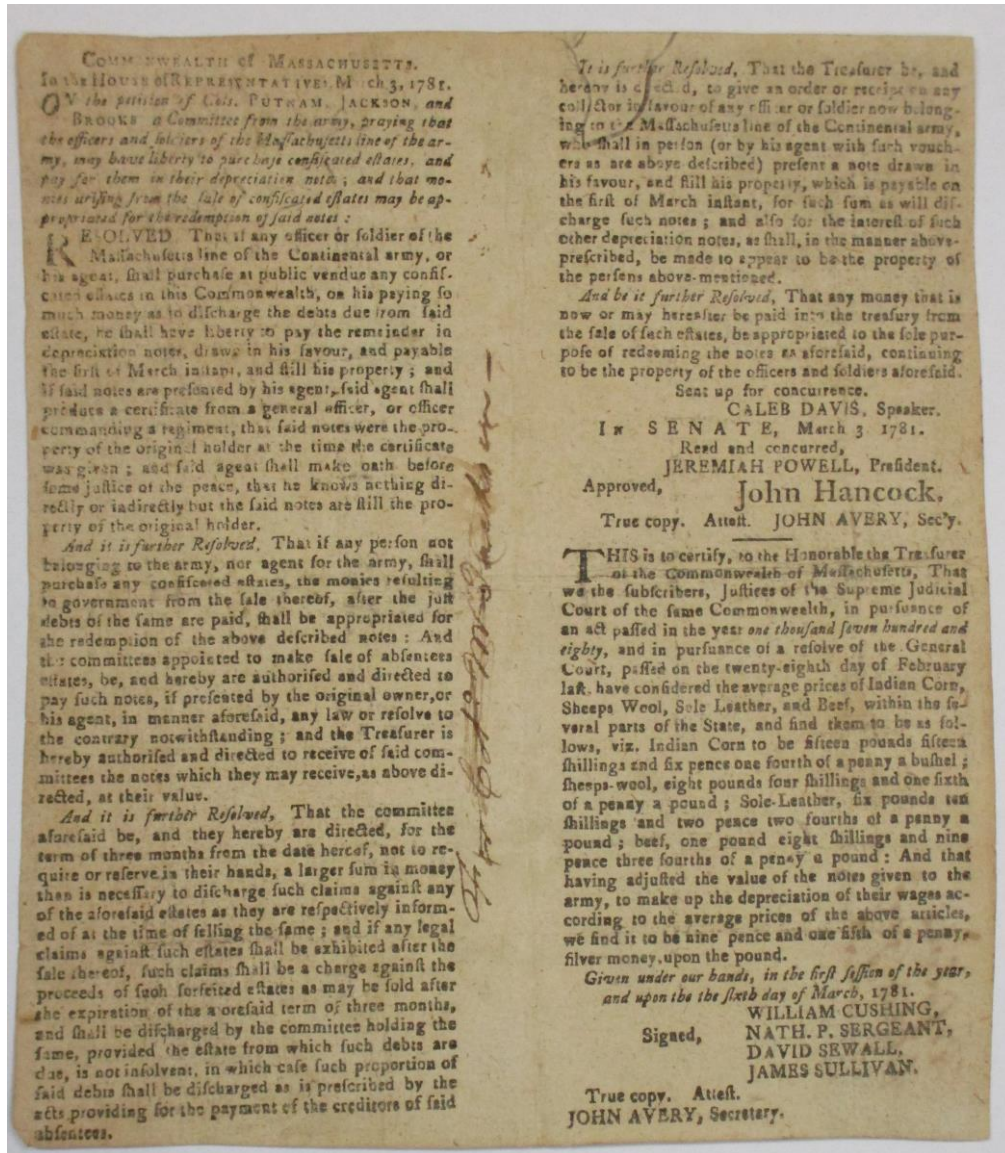 COMMONWEALTH of MASSACHUSETTS.
In the HOUSE of REPRESENTATIVES, March 3, 1781.
ON the petition of Cols. PUTNAM, JACKSON, and
BROOKS a Committee from the army, praying that
the officers and soldiers of the Massachusetts line of the ar-
my, may have liberty to purchase confiscated estates, and
pay for them in their depreciation notes; and that mo-
nies arising from the sale of confiscated estates may be ap-
propriated for the redemption of said notes:
RESOLVED That if any officer or soldier of the
Massachusetts line of the Continental army, or
his agent, shall purchase at public vendue any confis-
cated estates in this Commonwealth, on his paying so
much money as to discharge the debts due from said
estate, he shall have liberty to pay the remainder in
depreciation notes, drawn in his favour, and payable
the first of March instant, and still his property; and
if said notes are presented by his agent, said agent shall
produce a certificate from a general officer, or officer
commanding a regiment, that said notes were the pro-
perty of the original holder at the time the certificate
was given; and said agent shall make oath before
some justice of the peace, that he knows nothing di-
rectly or indirectly but the said notes are still the pro-
perty of the original holder.
And it is further Resolved, That if any person not
belonging to the army, nor agent for the army, shall
purchase any confiscated estates, the monies resulting
to government from the sale thereof, after the just
debts of the same are paid, shall be appropriated for
the redemption of the above described notes: And
the committees appointed to make sale of absentees
estates, be, and hereby are authorised and directed to
pay such notes, if presented by the original owner, or
his agent, in manner aforesaid, any law or resolve to
the contrary notwithstanding; and the Treasurer is
hereby authorised and directed to receive of said com-
mittees the notes which they may receive, as above di-
rected, at their value.
And it is further Resolved, That the committee
aforesaid be, and they hereby are directed, for the
term of three months from the date hereof, not to re-
quire or reserve in their hands, a larger sum in money
than is necessary to discharge such claims against any
of the aforesaid estates as they are respectively inform-
ed of at the time of selling the same; and if any legal
claims against such estates shall be exhibited after the
sale thereof, such claims shall be a charge against the
proceeds of such forfeited estates as may be sold after
the expiration of the aforesaid term of three months,
and shall be discharged by the committee holding the
same, provided the estate from which such debts are
due, is not insolvent, in which case such proportion of
said debts shall be discharged as is prescribed by the
acts providing for the payment of the creditors of said
absentees.
It is further Resolved, That the Treasurer be, and
hereby is directed, to give an order or receipt on any
collector in favour of any officer or soldier now belong-
ing to the Massachusetts line of the Continental army,
who shall in person (or by his agent with such vouch-
ers as are above described) present a note drawn in
his favour, and still his property, which is payable on
the first of March instant, for such sum as will dis-
charge such notes; and also for the interest of such
other depreciation notes, as shall, in the manner above-
prescribed, be made to appear to be the property of
the persons above-mentioned.
And be it further Resolved, That any money that is
now or may hereafter be paid into the treasury from
the sale of such estates, be appropriated to the sole pur-
pose of redeeming the notes as aforesaid, continuing
to be the property of the officers and soldiers aforesaid.
Sent up for concurrence.
CALEB DAVIS, Speaker.
In SENATE, March 3 1781.
Read and concurred,
JEREMIAH POWELL, President.
Approved, John Hancock.
True copy. Attest. JOHN AVERY, Sec'y.
THIS is to certify, to the Honorable the Treasurer
of the Commonwealth of Massachusetts, That
we the subscribers, Justices of the Supreme Judicial
Court of the same Commonwealth, in pursuance of
an act passed in the year one thousand seven hundred and
eighty, and in pursuance of a resolve of the General
Court, passed on the twenty-eighth day of February
last, have considered the average prices of Indian Corn,
Sheeps Wool, Sole Leather, and Beef, within the se-
veral parts of the State, and find them to be as fol-
lows, viz. Indian Corn to be fifteen pounds fifteen
shillings and six pence one fourth of a penny a bushel;
sheeps-wool, eight pounds four shillings and one sixth
of a penny a pound; Sole-Leather, six pounds ten
shillings and two pence two fourths of a penny a
pound; beef, one pound eight shillings and nine
pence three fourths of a penny a pound: And that
having adjusted the value of the notes given to the
army, to make up the depreciation of their wages ac-
cording to the average prices of the above articles,
we find it to be nine pence and one fifth of a penny,
silver money, upon the pound.
Given under our hands, in the first session of the year,
and upon the the sixth day of March, 1781.
WILLIAM CUSHING,
Signed, NATH. P. SERGEANT,
DAVID SEWALL,
JAMES SULLIVAN.
True copy. Attest.
JOHN AVERY, Secretary.